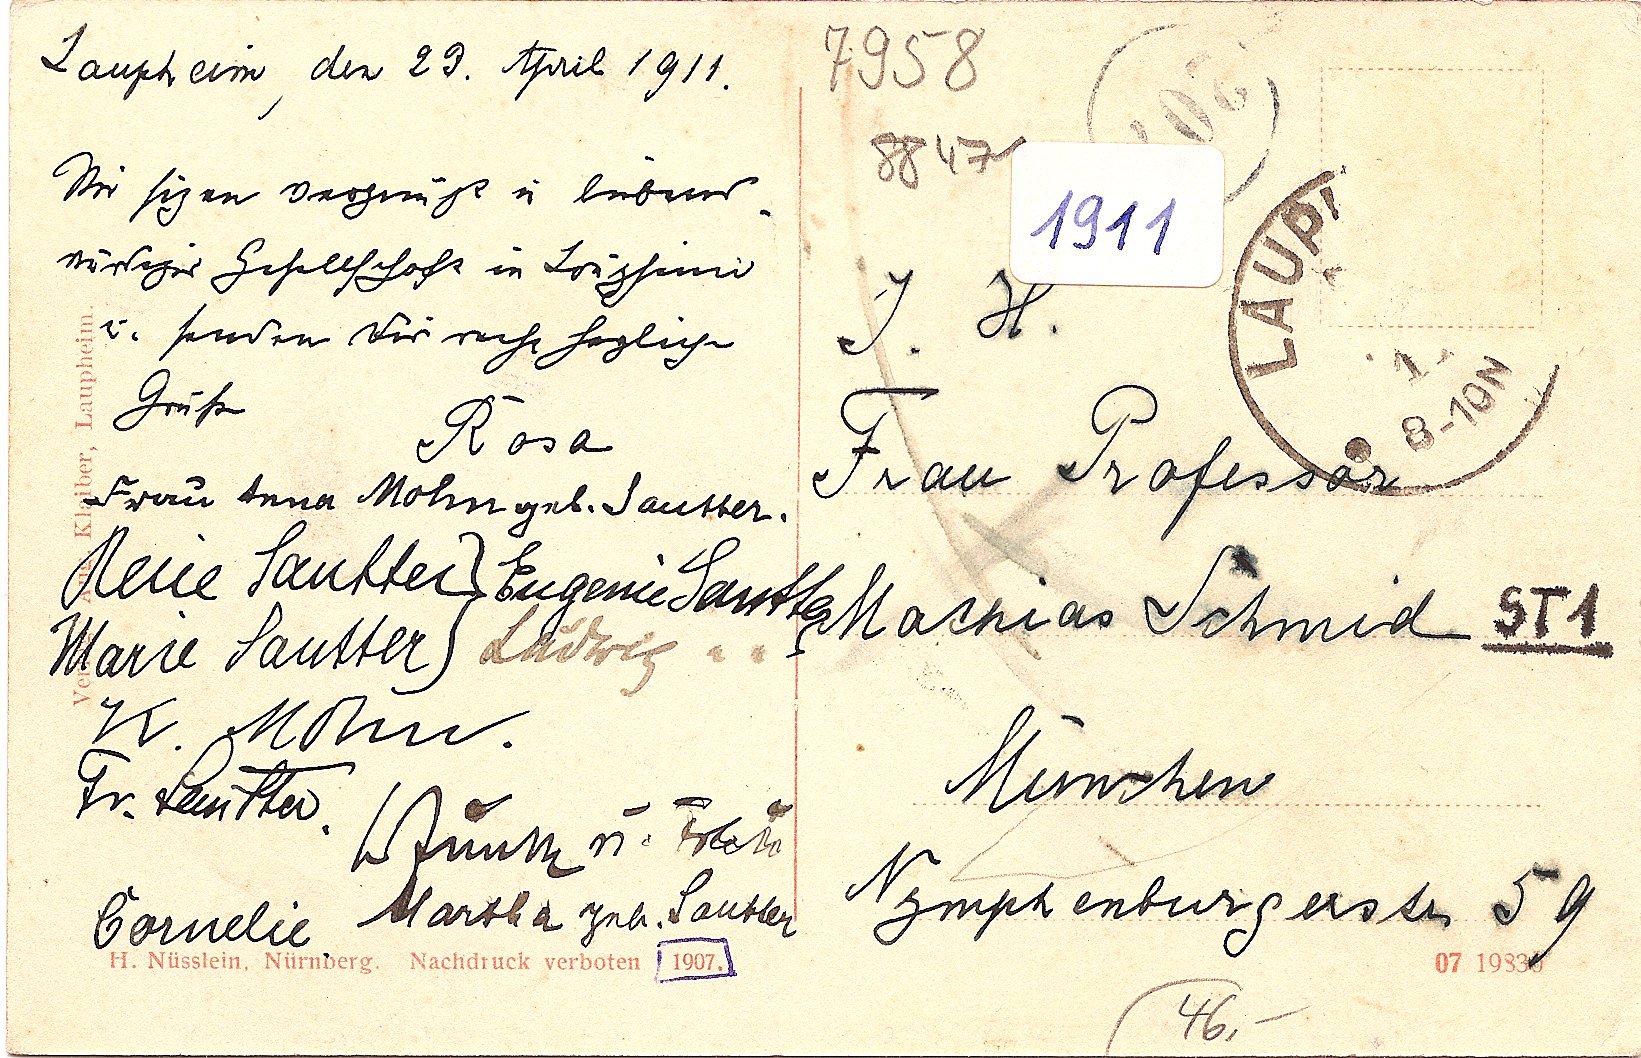 Laupheim, den 23. April 1911.
Wir sizen vergnügt in liebens-
würdiger Gesellschaft in Laupheim
u. senden Dir recht herzliche
Grüße
Rosa
Frau Anna Mohn geb. Sautter.
Marie Sautter
Eugenie Sautter
Ludwig "  "
K. Mohn.
Fr. Sautter.
u. Frau
Cornelie
Martha geb. Sautter
H. Nüsslein, Nürnberg. Nachdruck verboten 1907.
Verl. Aug. Klaiber, Laupheim.
7958
8847
1911
LAUPH
1
8-10N
I. H.
Frau Professor
Mathias Schmid
ST1
München
Nymphenburgerstr 59
07 1983
46,-